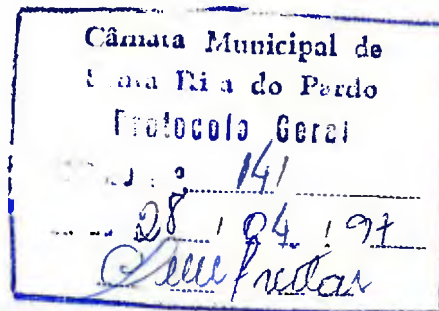 Câmara Municipal de
Santa Rita do Pardo
Protocolo Geral
141
28 / 04 / 97